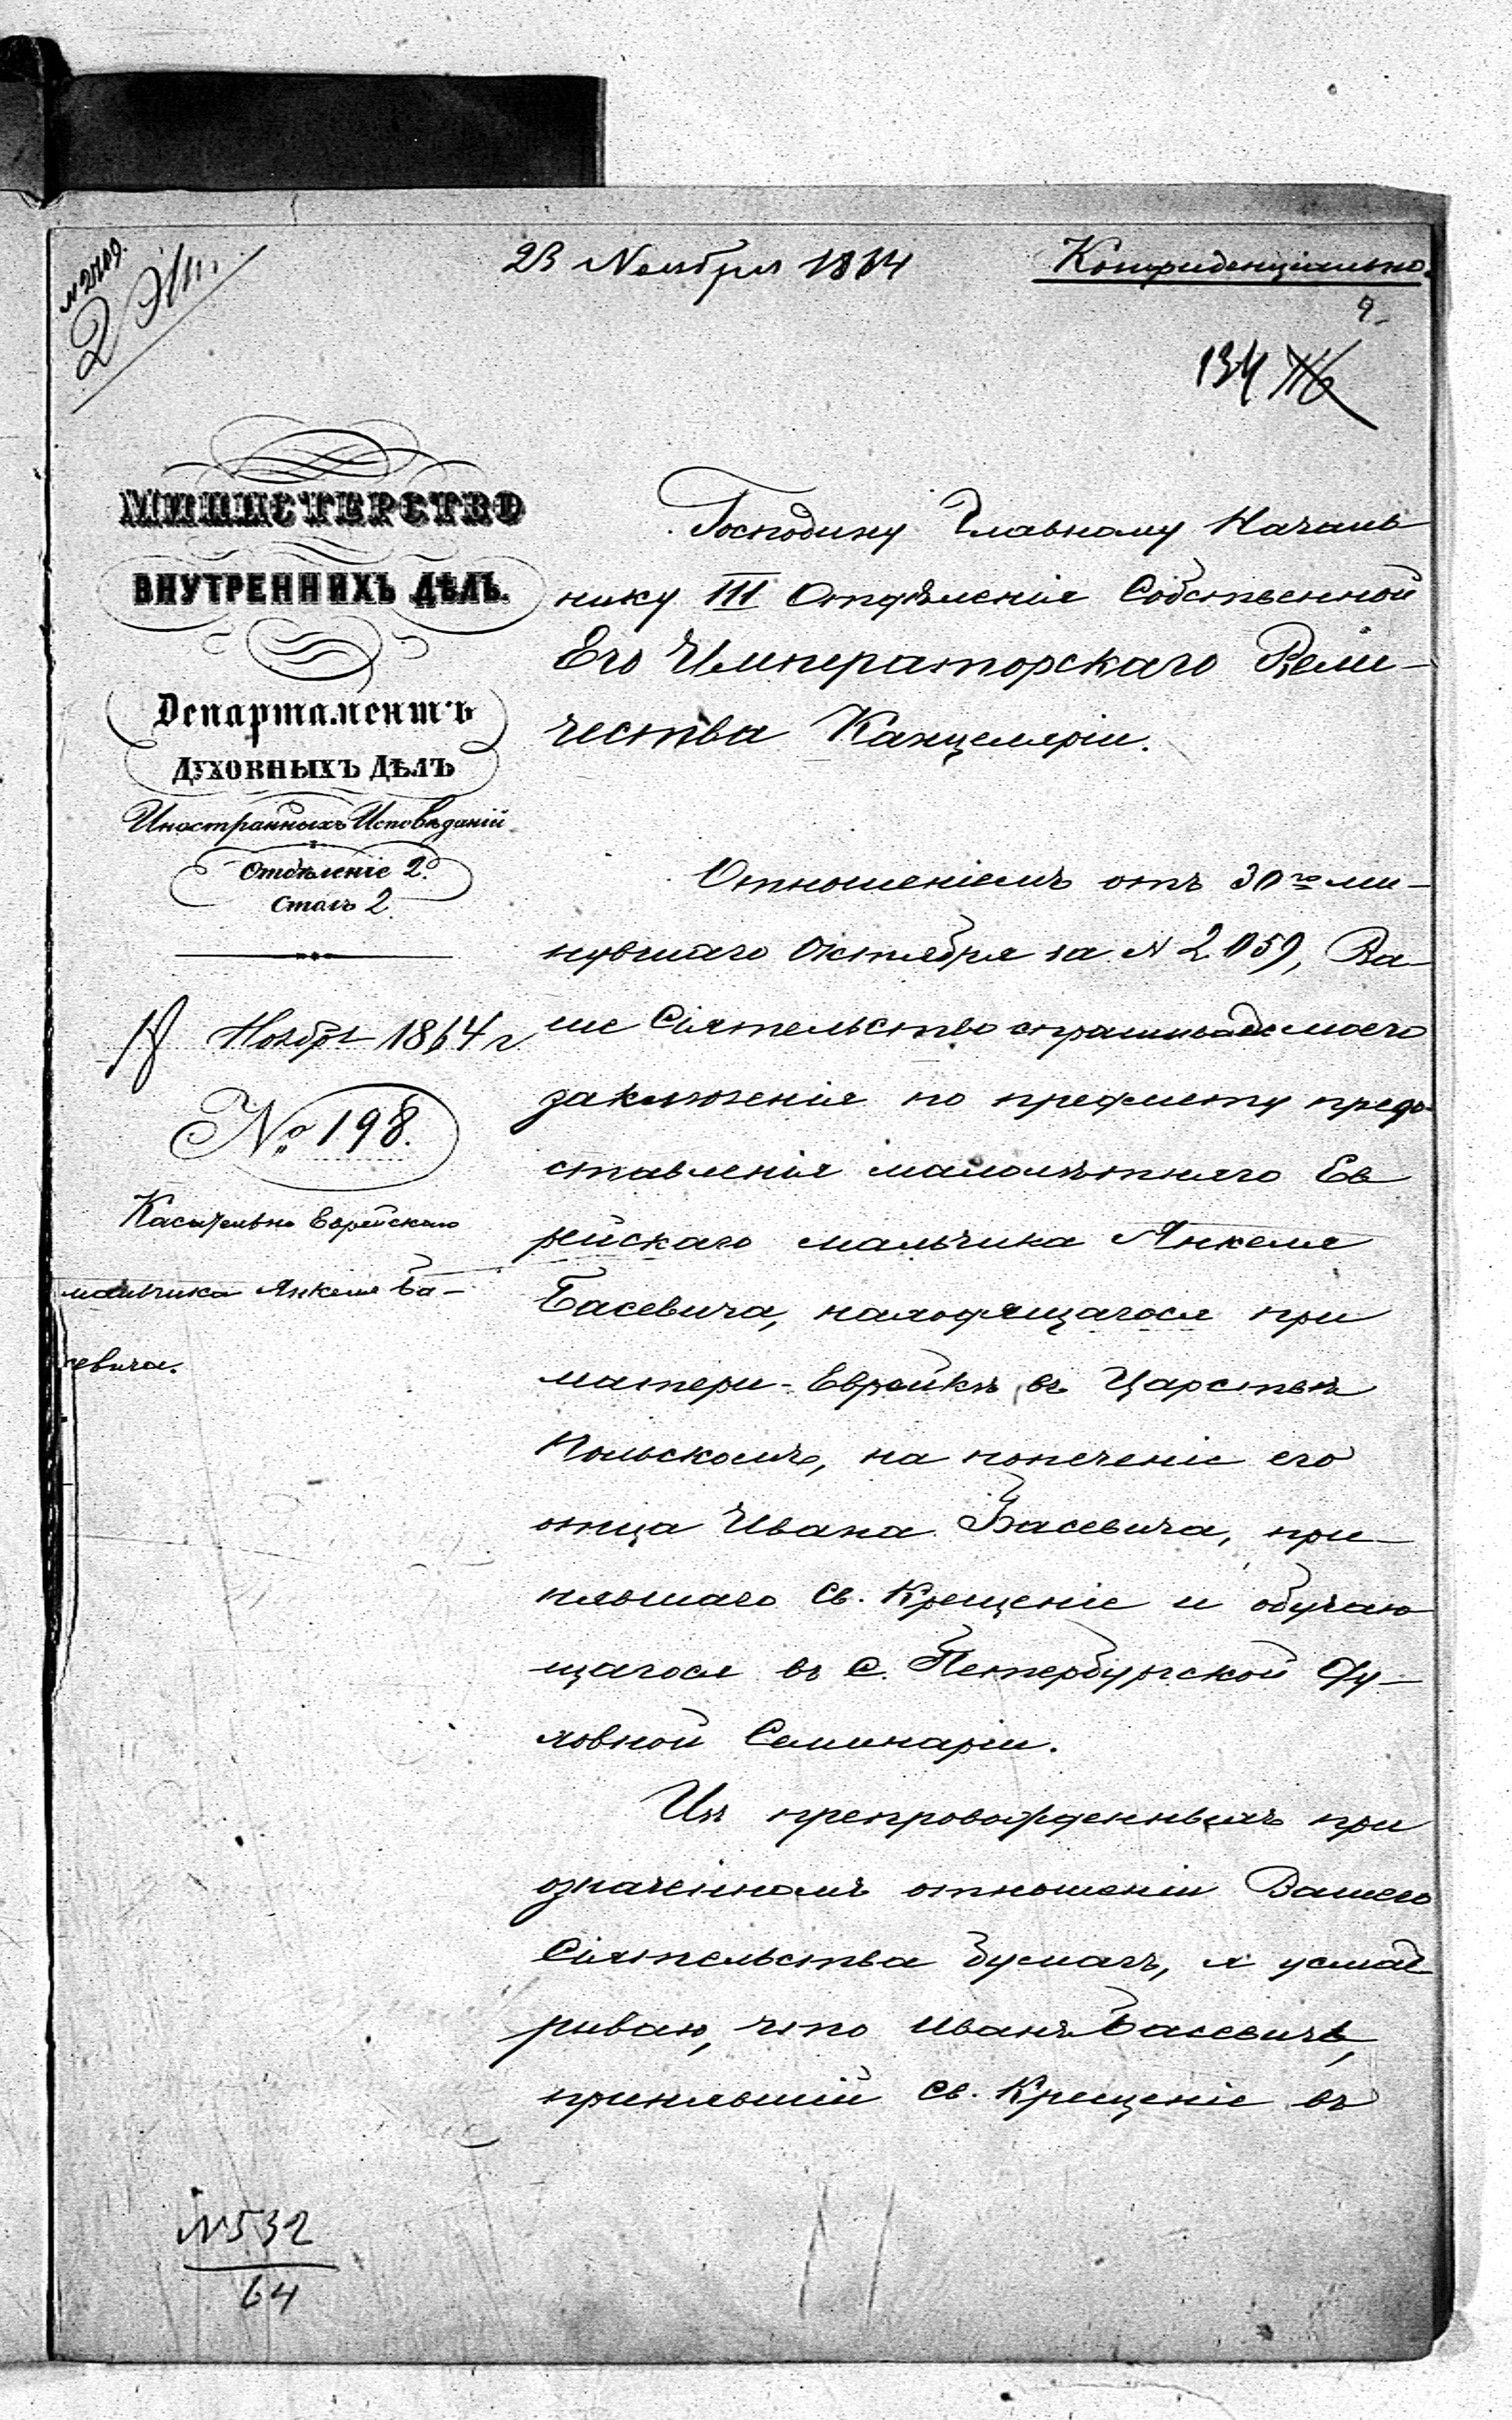 23 Ноября 1864
Конфиденціально.
9
134
МИНИСТЕРСТВО
ВНУТРЕННИХЪ ДѢЛЪ.
Департаментъ
ДУХОВНЫХЪ ДѢЛЪ
Иностранныхъ Исповѣданій
Отдѣленіе 2.
Столъ 2.
18 Ноября 1864 г.
№ 198.
Касательно Еврейскаго
мальчика Янкеля Ба-
севича.
№ 532
64
Господину Главному Началь
нику III Отдѣленія Собственной
Его Императорскаго Вели-
чества Канцеляріи.
Отношеніемъ отъ 30го ми-
нувшаго Октября за № 2059, Ва-
ше Сіятельство спрашиваете моего
заключенія по предмету предо-
ставленія малолѣтняго Ев
рейскаго мальчика Янкеля
Басевича, находящагося при
матери-Еврейкѣ въ Царствѣ
Польскомъ, на попеченіе его
отца Ивана Басевича, при-
нявшаго Св. Крещеніе и обучаю
щагося въ С. Петербургской Ду-
ховной Семинаріи.
Изъ препровожденныхъ при
означенномъ отношеніи Вашего
Сіятельства бумагъ, я усмат
риваю, что Иванъ Басевичъ,
принявшій Св. Крещеніе въ